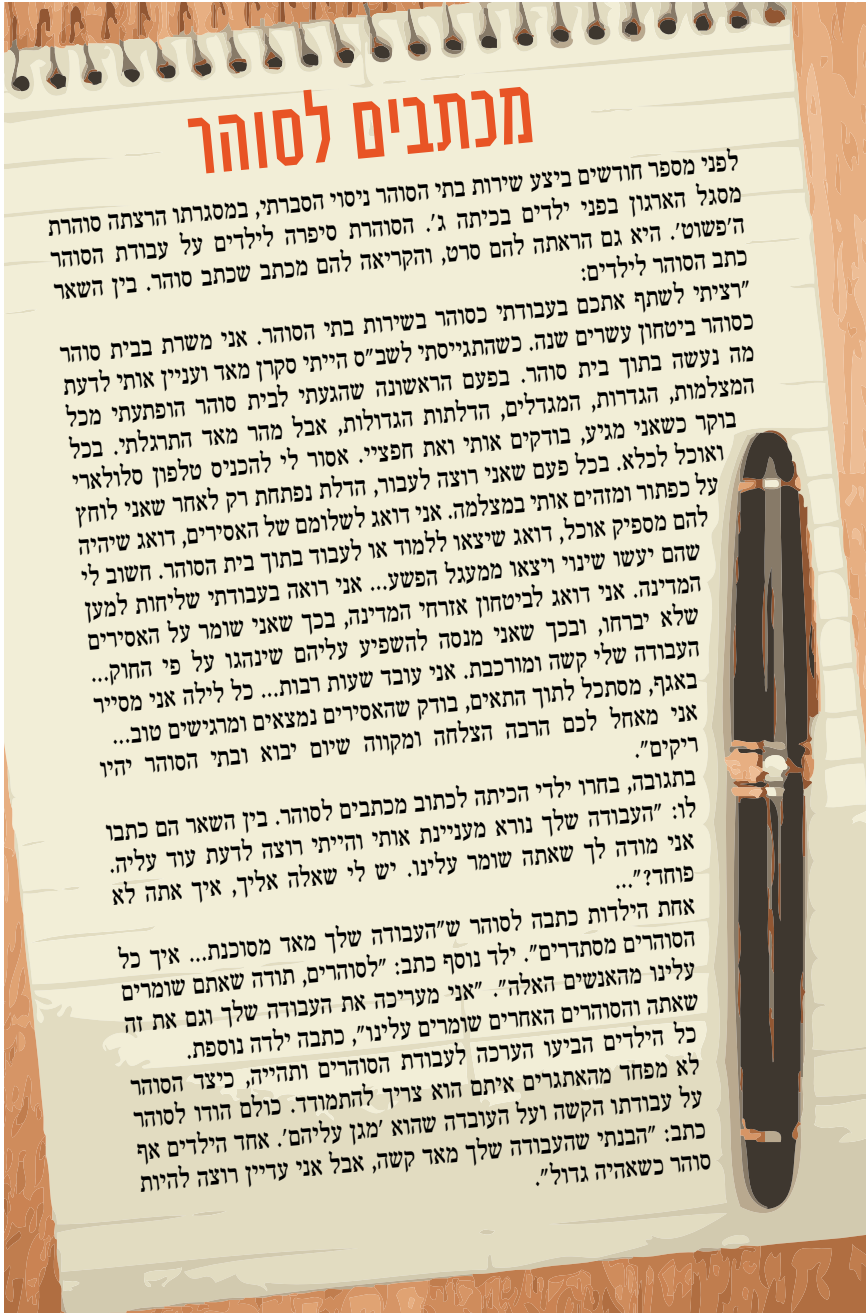 מכתבים לסוהר
לפני מספר חודשים ביצע שירות בתי הסוהר ניסוי הסברתי, במסגרתו הרצתה סוהרת
מסגל הארגון בפני ילדים בכיתה ג'. הסוהרת סיפרה לילדים על עבודת הסוהר
ה'פשוט'. היא גם הראתה להם סרט, והקריאה להם מכתב שכתב סוהר. בין השאר
כתב הסוהר לילדים:
"רציתי לשתף אתכם בעבודתי כסוהר בשירות בתי הסוהר. אני משרת בבית סוהר
כסוהר ביטחון עשרים שנה. כשהתגייסתי לשב"ס הייתי סקרן מאד ועניין אותי לדעת
מה נעשה בתוך בית סוהר. בפעם הראשונה שהגעתי לבית סוהר הופתעתי מכל
המצלמות, הגדרות, המגדלים, הדלתות הגדולות, אבל מהר מאד התרגלתי. בכל
בוקר כשאני מגיע, בודקים אותי ואת חפציי. אסור לי להכניס טלפון סלולארי
ואוכל לכלא. בכל פעם שאני רוצה לעבור, הדלת נפתחת רק לאחר שאני לוחץ
על כפתור ומזהים אותי במצלמה. אני דואג לשלומם של האסירים, דואג שיהיה
להם מספיק אוכל, דואג שיצאו ללמוד או לעבוד בתוך בית הסוהר. חשוב לי
שהם יעשו שינוי ויצאו ממעגל הפשע... אני רואה בעבודתי שליחות למען
המדינה. אני דואג לביטחון אזרחי המדינה, בכך שאני שומר על האסירים
שלא יברחו, ובכך שאני מנסה להשפיע עליהם שינהגו על פי החוק...
העבודה שלי קשה ומורכבת. אני עובד שעות רבות... כל לילה אני מסייר
באגף, מסתכל לתוך התאים, בודק שהאסירים נמצאים ומרגישים טוב...
אני מאחל לכם הרבה הצלחה ומקווה שיום יבוא ובתי הסוהר יהיו
ריקים".
בתגובה, בחרו ילדי הכיתה לכתוב מכתבים לסוהר. בין השאר הם כתבו
לו: "העבודה שלך נורא מעניינת אותי והייתי רוצה לדעת עוד עליה.
אני מודה לך שאתה שומר עלינו. יש לי שאלה אליך, איך אתה לא
פוחד?"...
אחת הילדות כתבה לסוהר ש"העבודה שלך מאד מסוכנת... איך כל
הסוהרים מסתדרים". ילד נוסף כתב: "לסוהרים, תודה שאתם שומרים
עלינו מהאנשים האלה". "אני מעריכה את העבודה שלך וגם את זה
שאתה והסוהרים האחרים שומרים עלינו", כתבה ילדה נוספת.
כל הילדים הביעו הערכה לעבודת הסוהרים ותהייה, כיצד הסוהר
לא מפחד מהאתגרים איתם הוא צריך להתמודד. כולם הודו לסוהר
על עבודתו הקשה ועל העובדה שהוא 'מגן עליהם'. אחד הילדים אף
כתב: "הבנתי שהעבודה שלך מאד קשה, אבל אני עדיין רוצה להיות
סוהר כשאהיה גדול".